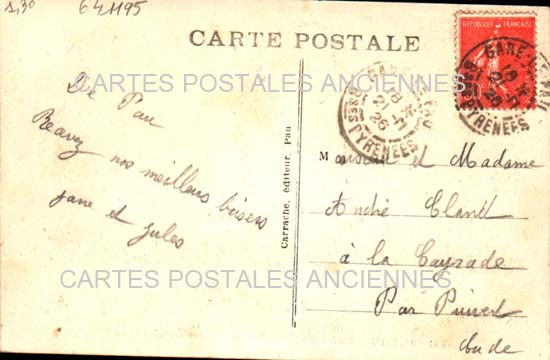 1,30
641195
CARTE POSTALE
REPUBLIQUE FRANÇAISE
GARE DE PAU
18
21-11
26
BSSES PYRENEES
GARE DE PAU
18
21-11
26
BSSES PYRENEES
CARTES POSTALES ANCIENNES
De Pau
Recevez nos meilleurs baisers
Jane et Jules
Carrache, éditeur, Pau
Monsieur et Madame
André Cland
à la Cayrade
Par Puivert
Aude
CARTES POSTALES ANCIENNES